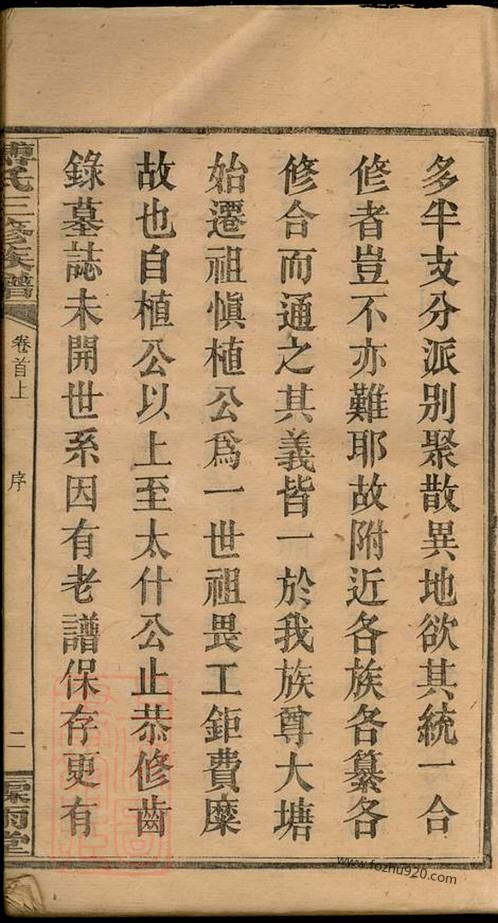 多半支分派别聚散異地欲其統一合
修者豈不亦難耶故附近各族各纂各
修合而通之其義皆一於我族尊大塘
始遷祖慎植公爲一世祖畏工鉅費糜
故也自植公以上至太什公止恭修齒
錄墓誌未開世系因有老譜保存更有
傅氏三修族譜
卷首上
序
二
霖雨堂
www.fozhu920.com